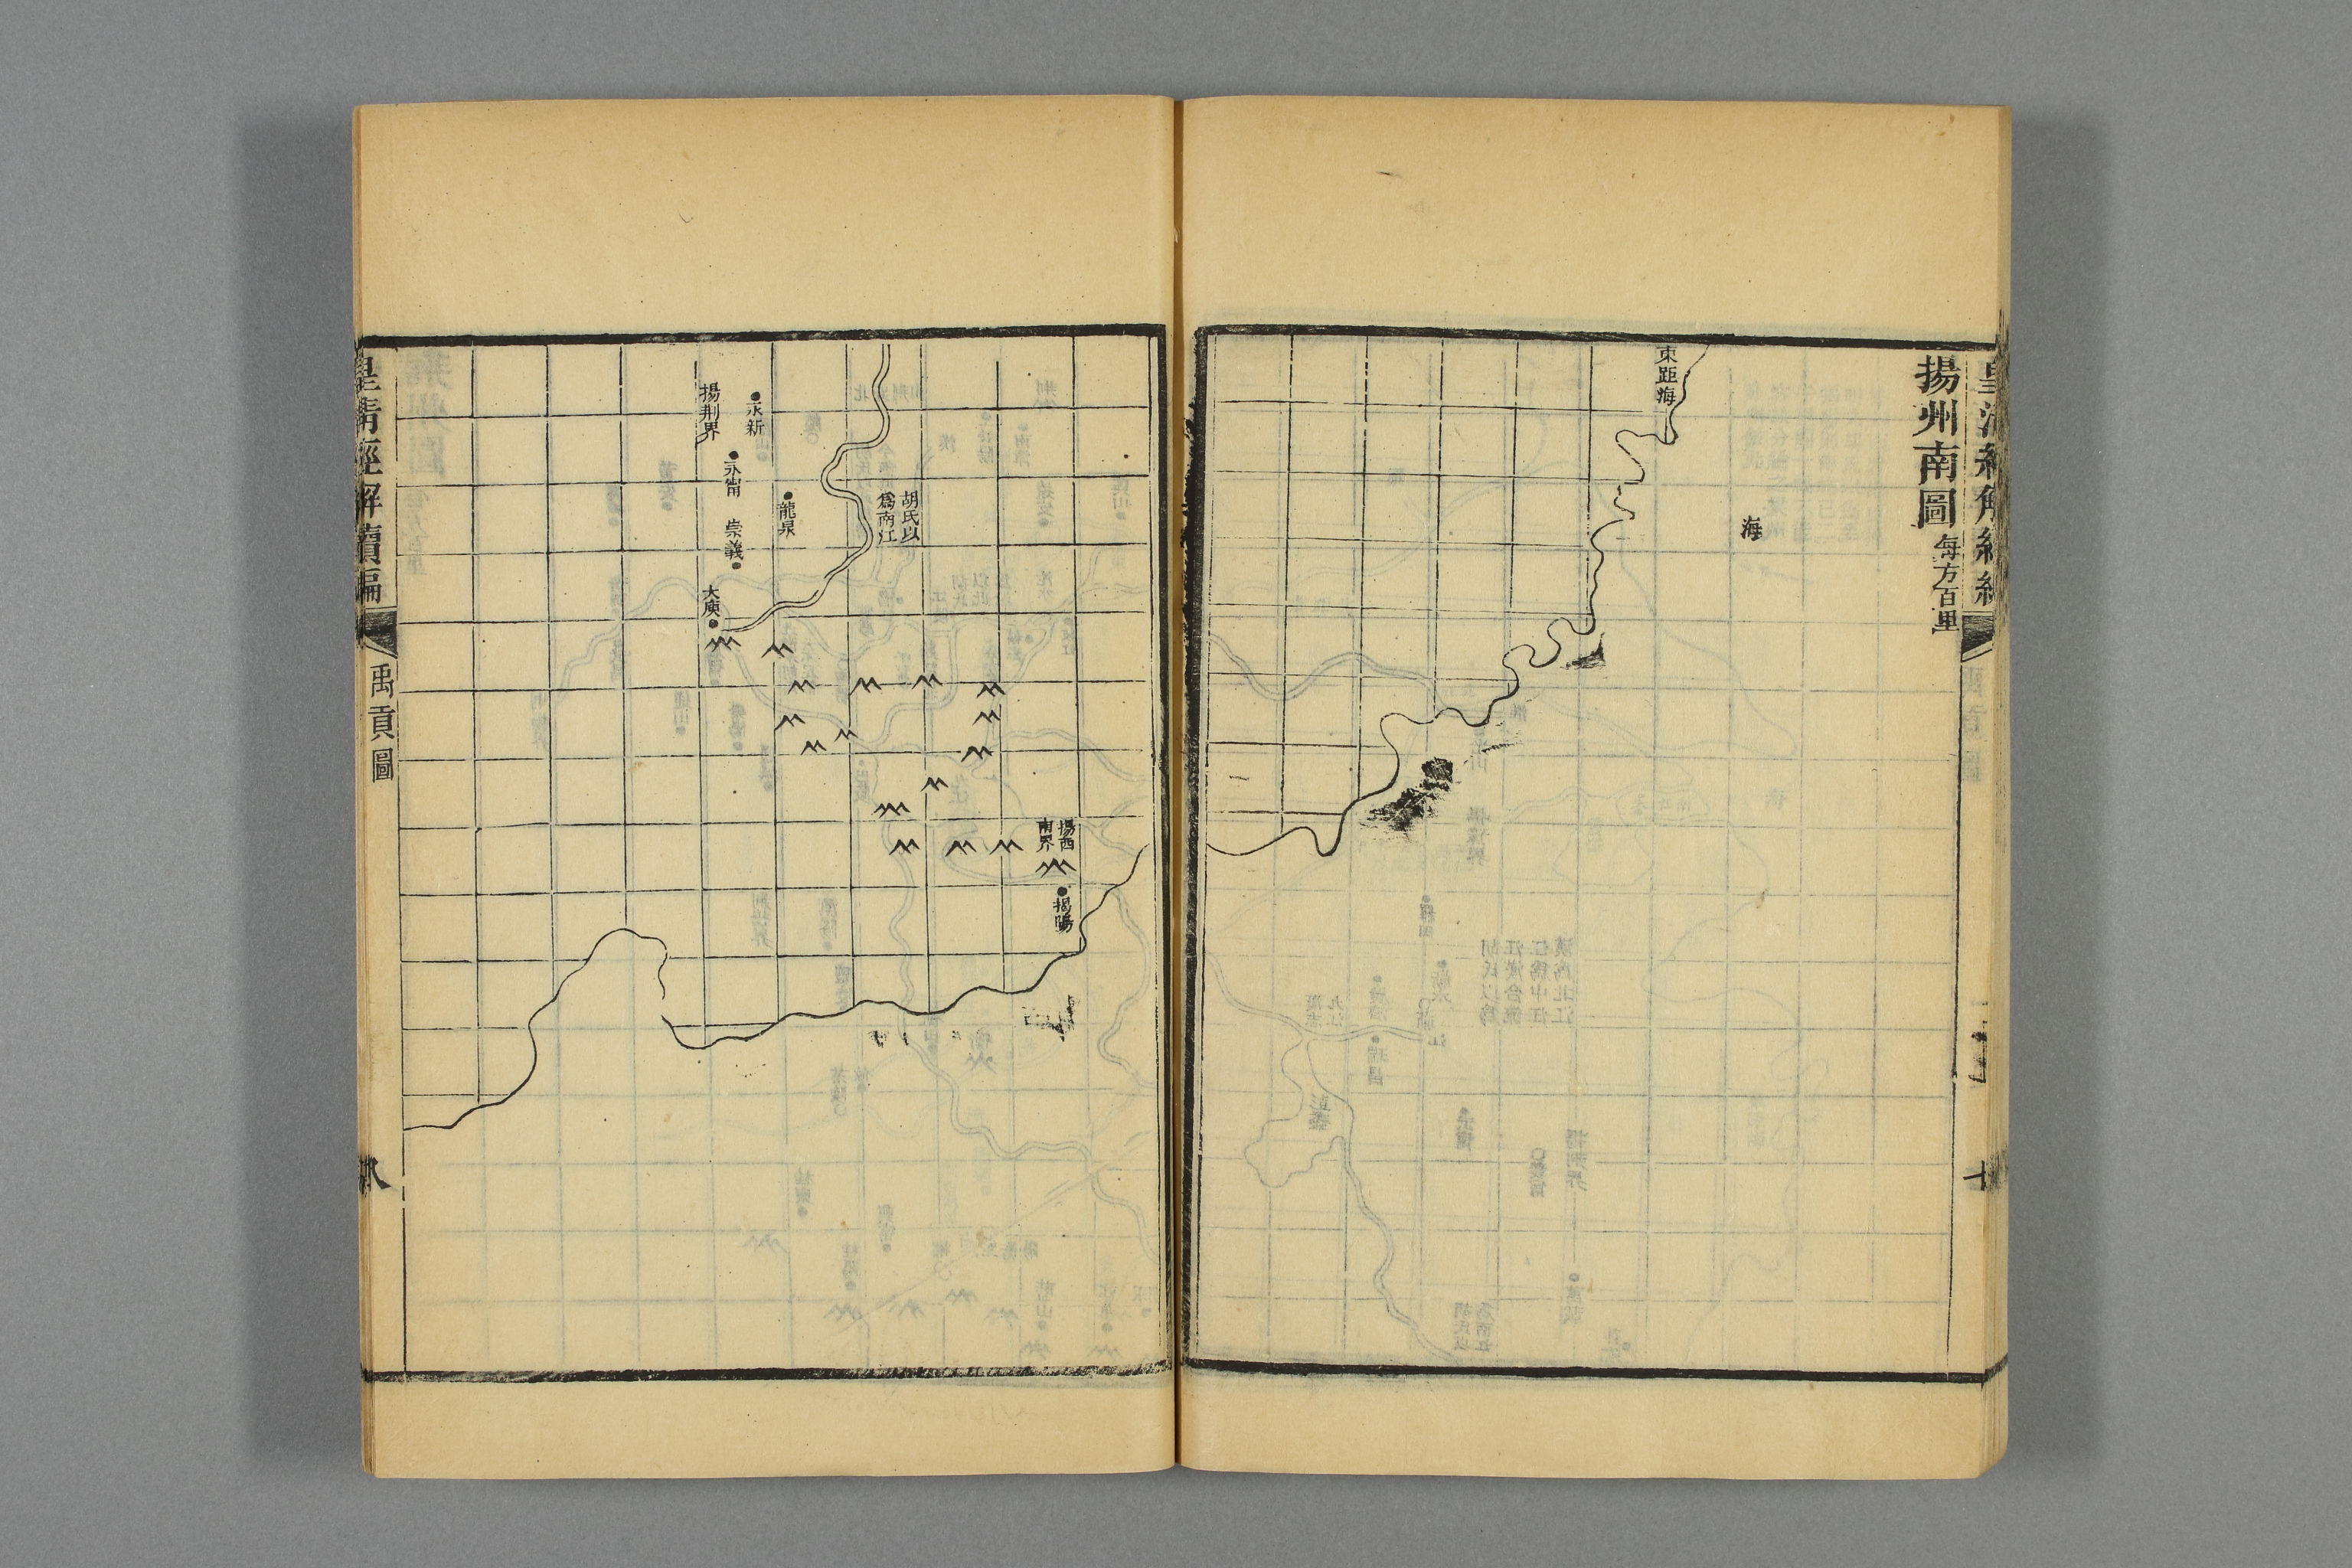 揚州南圖 每方百里
海
東距海
揚西
南界
揭陽
胡氏以
爲南江
龍泉
永新
永甯
崇義
大庾
揚荆界
皇清經解續編
禹貢圖
八